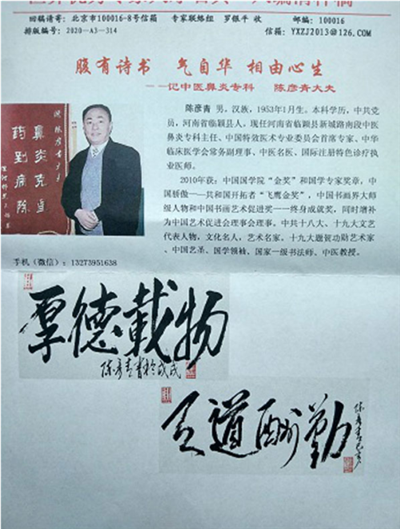 回稿请寄：北京市100016-8号信箱 专家联络组 罗银平 收 邮编：100016
排版编号：2020-A3-314 信箱：YXZJ2013@126.COM
腹有诗书 气自华 相由心生
——记中医鼻炎专科 陈彦青大夫
陈彦青 男，汉族，1953年1月生，本科学历，中共党
员，河南省临颍县人，现任河南省临颍县新城路南段中医
鼻炎专科主任、中国特效医术专业委员会首席专家、中华
临床医学会常务副理事、中医名医、国际注册特色诊疗执
业医师。
2010年获：中国国学院“金奖”和国学专家奖章，中
国骄傲——共和国开拓者“飞鹰金奖”，中国书画界大师
级人物和中国书画艺术促进奖——终身成就奖，同时增补
为中国艺术促进会理事会理事。中共十八大、十九大文艺
代表人物，文化名人，艺术名家，十九大题贺功勋艺术家
、中国艺圣、国学领袖、国家一级书法师、中医教授。
鼻炎克星
药到病除
手机（微信）：13273951638
厚德载物
陈彦青书于戊戌
天道酬勤
陈彦青